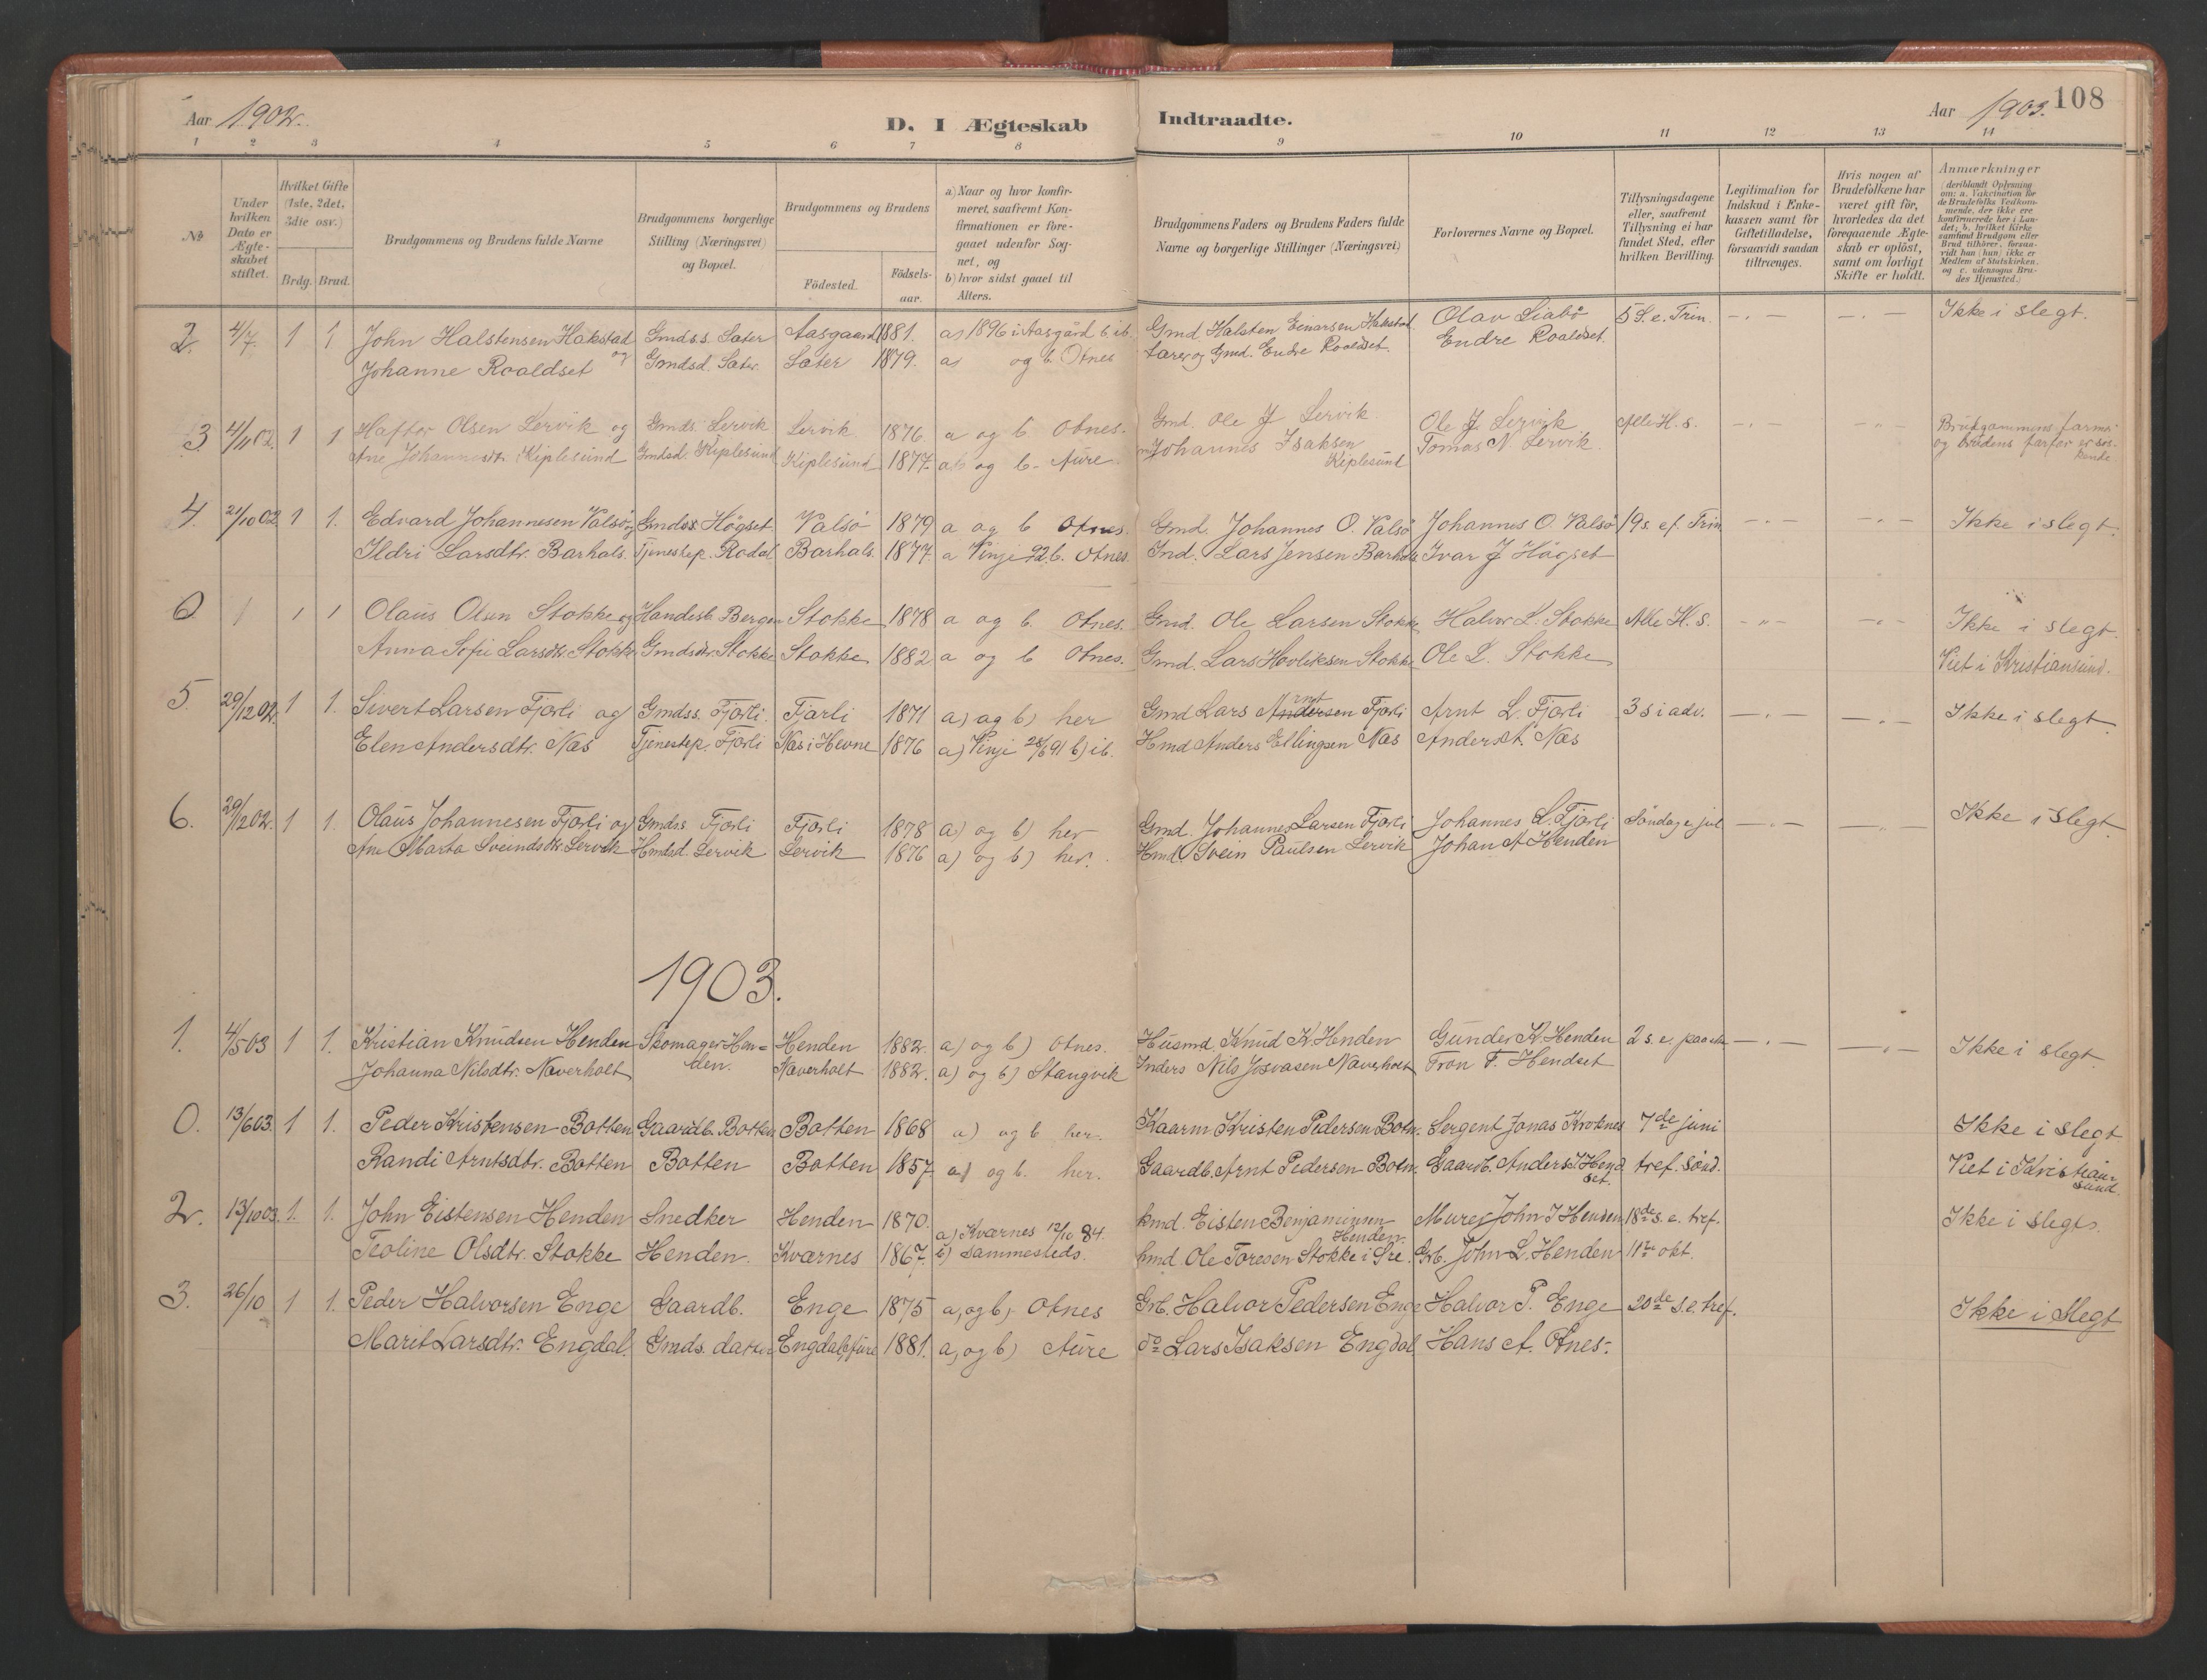 Aar 1902.
D. I Ægteskab
Indtraadte.
Aar 1903. 108
1 2 3 4 5 6 7 8 9 10 11 12 13 14
№
Under hvilken Dato er Ægteskabet stiftet.
Hvilket Gifte (1ste, 2det, 3die osv.)
Brdg. Brud.
Brudgommens og Brudens fulde Navne
Brudgommens borgerlige Stilling (Næringsvei) og Bopæl.
Brudgommens og Brudens
Födested.
Födsels-aar.
a) Naar og hvor konfirmeret, saafremt Konfirmationen er foregaaet udenfor Sognet, og
b) hvor sidst gaaet til Alters.
Brudgommens Faders og Brudens Faders fulde Navne og borgerlige Stillinger (Næringsvei)
Forlovernes Navne og Bopæl.
Tillysningsdagene eller, saafremt Tillysning ei har fundet Sted, efter hvilken Bevilling.
Legitimation for Indskud i Enkekassen samt for Giftetilladelse, forsaavidt saadan tiltrænges.
Hvis nogen af Brudefolkene har været gift för, hvorledes da det foregaaende Ægteskab er oplöst, samt om lovligt Skifte er holdt.
Anmærkninger (deriblandt Oplysning om: a. Vakcination for de Brudefolks Vedkommende, der ikke ere konfirmerede her i Landet; b. hvilket Kirkesamfund Brudgom eller Brud tilhörer, forsaavidt han (hun) ikke er Medlem af Statskirken, og c. udensogns Brudes Hjemsted.)
2. 4/7 1 1 John Halstensen Hakstad og Gmdss. Sæter Aasgaard 1881. a) 1896 i Aasgård b. ib. Gmd. Halsten Einarsen Hakstad Olav Liabö 5 S. e. Trin. Ikke i slegt.
Johanne Roaldset Gmdsd. Sæter. Sæter 1879. a) og b. Otnes og Gmd. Endre Roaldset. Endre Roaldset.
3. 4/11 02. 1 1 Hafter Olsen Lervik og Gmds. Lervik Lervik 1876. a og b Otnes. Gmd. Ole J Lervik Ole J. Lervik Alle H. s. Brudgommens farmor
Ane Johannesdtr. Kiplesund Gmdsd. Kiplesund Kiplesund 1877. a og b. Aure Johannes Isaksen Kiplesund Tomas N Lervik. og brudens farfer er søskende.
4. 21/10 02 1 1. Edvard Johannesen Valsö og Gmdss. Högset Valsö 1879 a og b Otnes. Gmd. Johannes O. Valsö Johannes O Valsö 19 s. ef. Trin Ikke i slegt.
Ildri Larsdtr. Barhals. Tjenestep. Rodal Barhals. 1877. a Vinje 92 b. Otnes. Ind. Lars Jensen Barhals Ivar J Högset
0 1 1 1 Olaus Olsen Stokke og Handelsb. Bergen Stokke 1878 a og b. Otnes. Gmd. Ole Larsen Stokke Halvor L. Stokke Alle H. S. Ikke i slegt.
Anna Sofie Larsdtr. Stokke Gmdsdtr. Stokke Stokke 1882 a og b Otnes. Gmd. Lars Hovliksen Stokke Ole L. Stokke Viet i Kristiansund.
5. 29/12 02. 1 1. Sivert Larsen Fjærli og Gmdss. Fjærli. Fjærli 1871 a) og b) her Gmd Lars Andersen Arnt Fjærli Arnt L. Fjærli 3 s i adv. Ikke i slegt.
Elen Andersdtr. Næs Tjenestep. Fjærli Næs i Hevne 1876 a) Vinje 28/6 91 b) ib. Hmd Anders Ellingsen Næs Anders A. Næs
6. 29/12 02. 1 1. Olaus Johannesen Fjærli og Gmdss. Fjærli Fjærli 1878 a) og b) her Gmd. Johannes Larsen Fjærli Johannes L. Fjærli Söndag e jul Ikke i slegt.
Ane Marta Sveindsdtr. Lervik Hmdsd. Lervik Lervik 1876 a) og b) her. Hmd. Svein Paulsen Lervik Johan A Henden
1903.
1. 4/5 03 1 1. Kristian Knudsen Henden Skomager Henden. Henden 1882. a) og b) Otnes. Husmd. Knud K. Henden Gunder K. Henden 2 s. e. paaske Ikke i slegt.
Johanna Nilsdtr. Naverholt Naverholt 1882. a) og b) Stangvik Inders Nils Josvasen Naverholt Tron F. Hendset
0. 13/6 03. 1 1. Peder Kristensen Botten Gaardb. Botten Botten 1868 a) og b her. Kaarm Kristen Pedersen Botn. Sergent Jonas Krotnes 7de juni Ikke i slegt
Randi Arntsdtr. Botten Botten Botten 1857. a) og b. her. Gaardb. Arnt Pedersen Botn. Gaardb. Anders I Hendset. tref. sönd. Viet i Kristiansund.
2. 13/10 03. 1. 1. John Eistensen Henden Snedker Henden 1870. a) Kværnes 12/10 84. hmd. Eisten Benjaminsen Henden. Murer John I Henden 18de s. e. tref. Ikke i slegt.
Teoline Olsdtr. Stokke Henden. Kværnes 1867. b) Sammesteds. hmd. Ole Toresen Stokke i Sre. Grb. John L. Henden 11te okt.
3. 26/10 1 1. Peder Halvorsen Enge Gaardb. Enge 1875 a, og b, Otnes Grb. Halvor Pedersen Enge Halvor P. Enge 20de s. e. tref. Ikke i Slegt
Marit Larsdtr. Engdal. Gmds. datter Engdal, Aure 1881. a, og b) Aure do Lars Isaksen Engdal Hans A. Otnes.